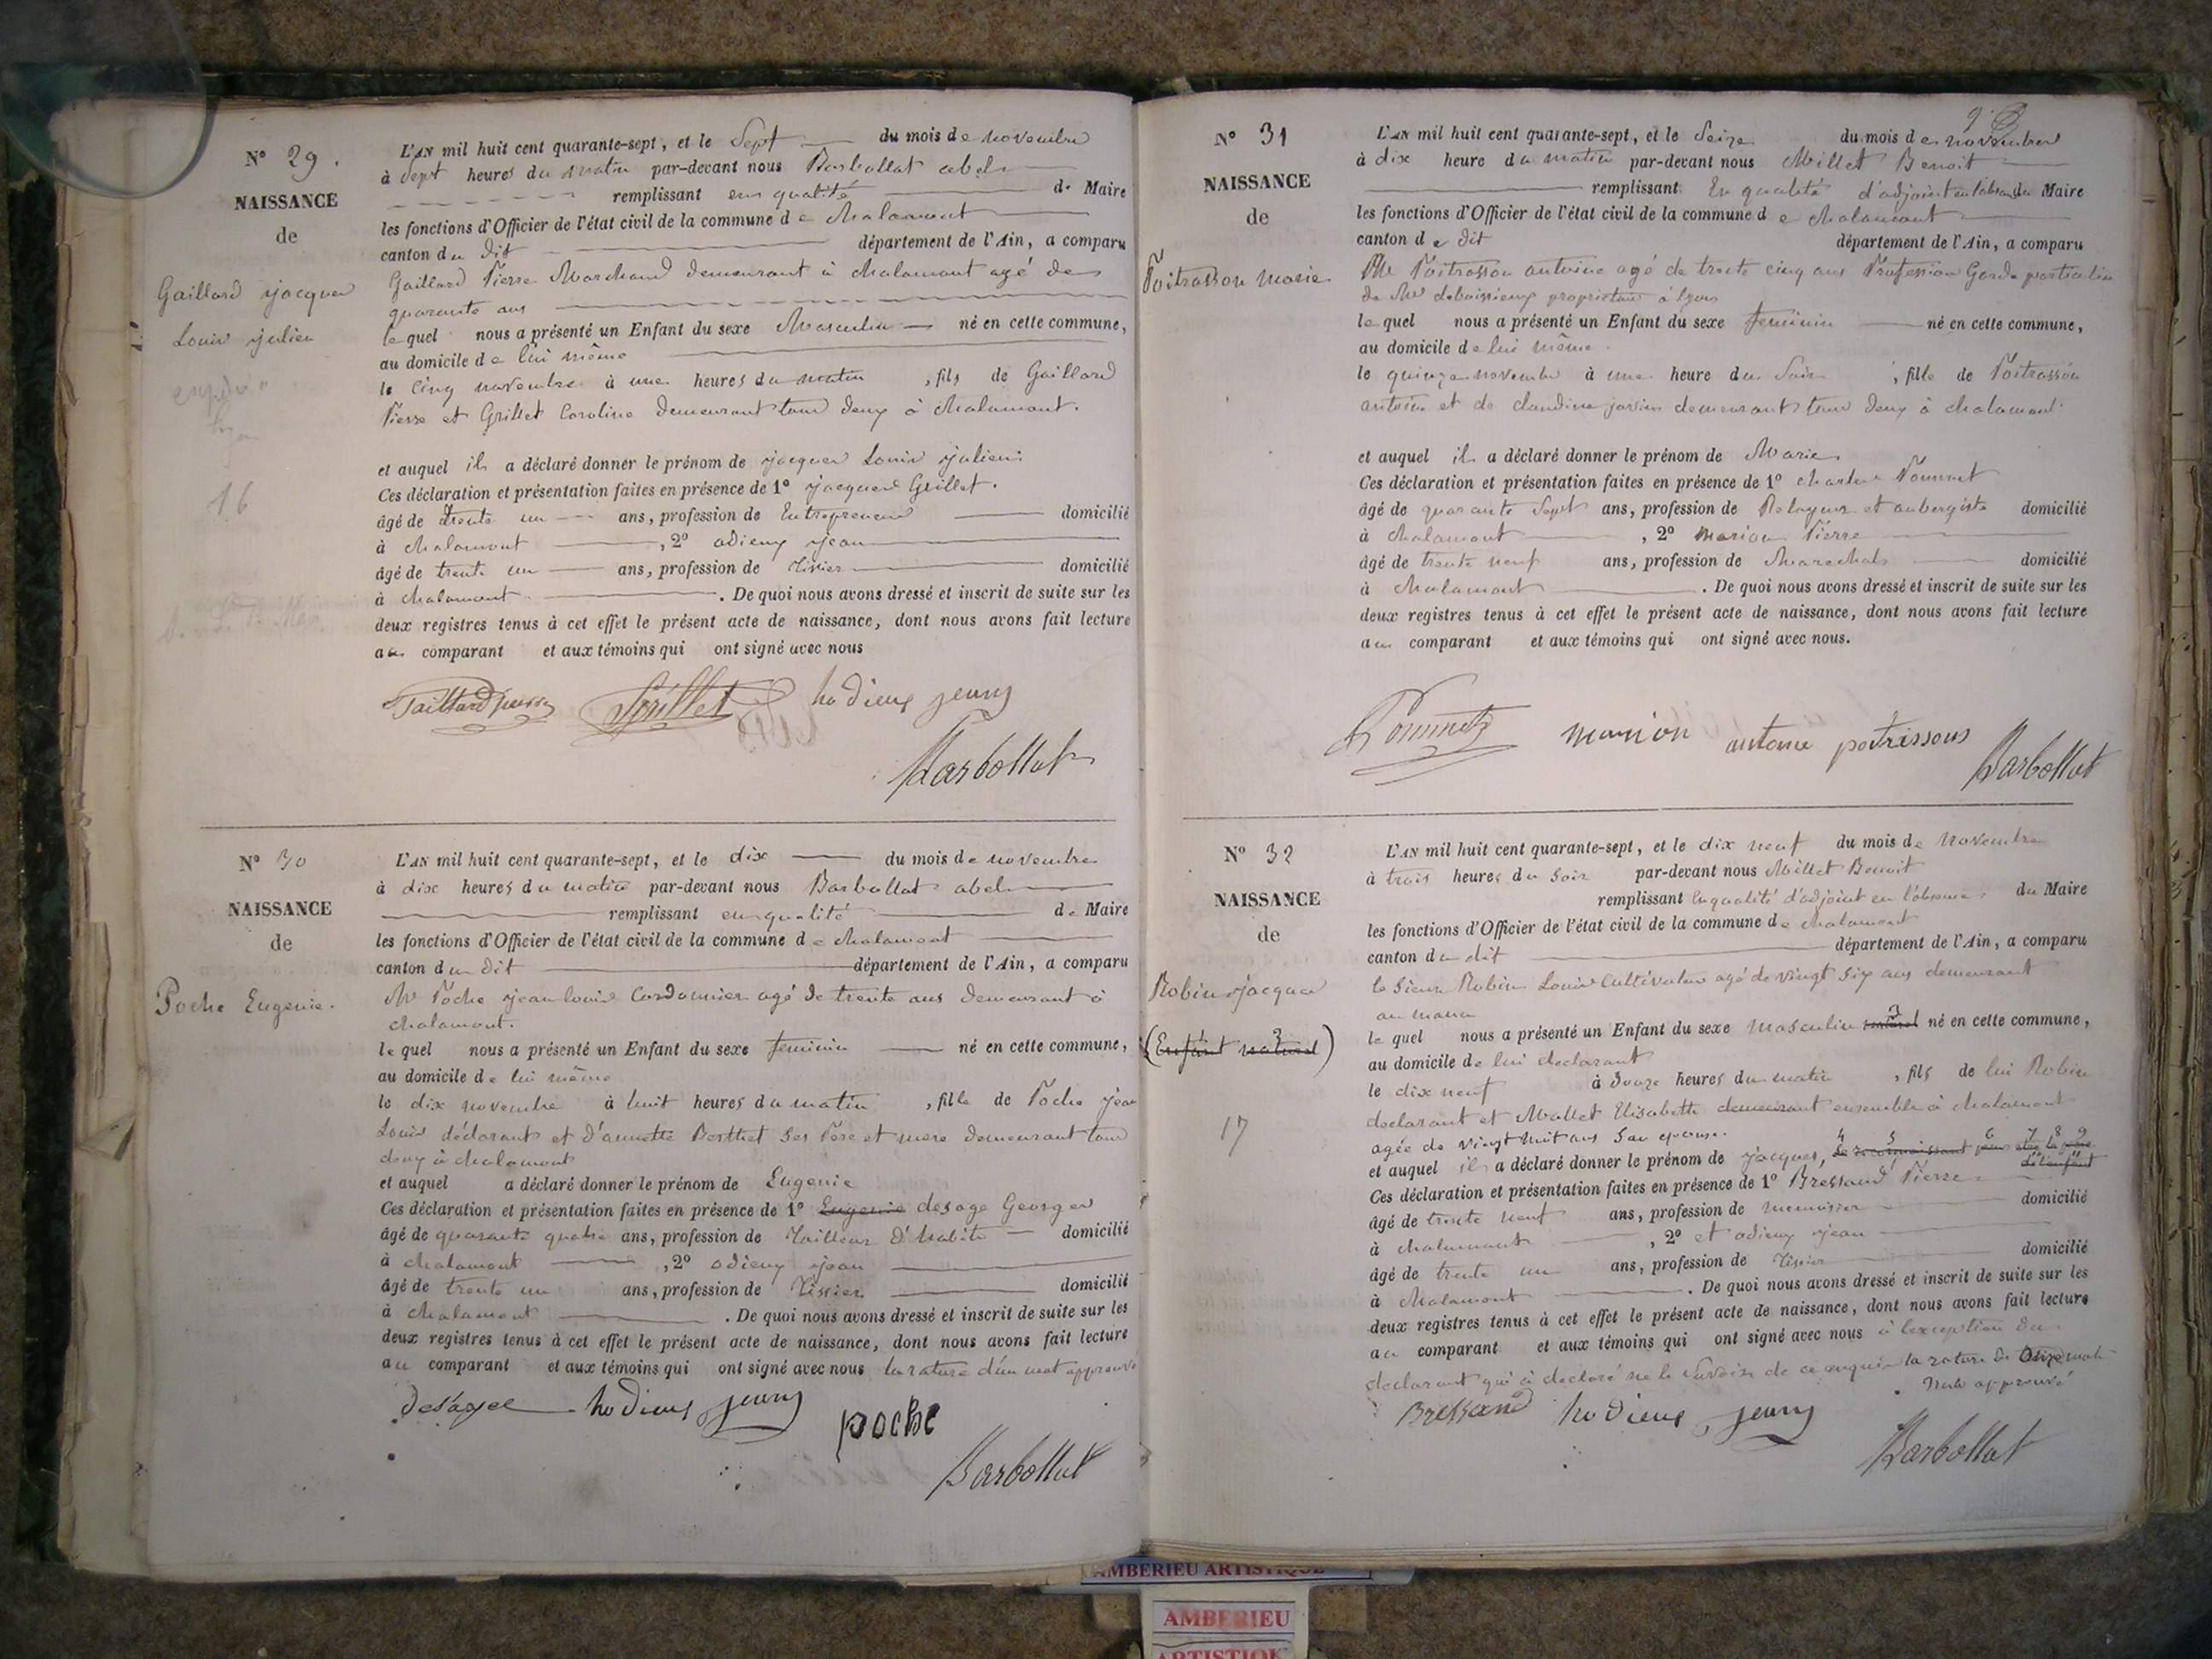 N° 29.
NAISSANCE
de
Gaillard jacques
Louis julien
16
L'AN mil huit cent quarante-sept, et le Sept du mois de novembre
à Sept heures du matin par-devant nous Barbollat abel
remplissant en qualité de Maire
les fonctions d'Officier de l'état civil de la commune de chalamont
canton du dit département de l'Ain, a comparu
Gaillard Pierre Marchand demeurant à chalamont agé de
quarante ans
lequel nous a présenté un Enfant du sexe Masculin né en cette commune,
au domicile de lui même
le cinq novembre à une heures du matin, fils de Gaillard
Pierre et Grillet Caroline demeurant tous deux à chalamont.
et auquel il a déclaré donner le prénom de jacques Louis julien
Ces déclaration et présentation faites en présence de 1° jacques Grillet.
âgé de trente un ans, profession de Entrepreneur domicilié
à chalamont, 2° odieux jean
âgé de trente un ans, profession de Tissier domicilié
à chalamont. De quoi nous avons dressé et inscrit de suite sur les
deux registres tenus à cet effet le présent acte de naissance, dont nous avons fait lecture
au comparant et aux témoins qui ont signé avec nous
Gaillard pierre Grillet hodieux jeung
Barbollat
N° 30
NAISSANCE
de
Poche Eugenie.
L'AN mil huit cent quarante-sept, et le dix du mois de novembre
à dix heures du matin par-devant nous Barbollat abel
remplissant en qualité de Maire
les fonctions d'Officier de l'état civil de la commune de chalamont
canton du dit département de l'Ain, a comparu
Mr Poche jean louis Cordonnier agé de trente ans demeurant à
chalamont.
lequel nous a présenté un Enfant du sexe feminin né en cette commune,
au domicile de lui même
le dix novembre à huit heures du matin, fille de Poche jean
Louis déclarant et d'annette Berthet ses Père et mere demeurant tous
deux à chalamont
et auquel a déclaré donner le prénom de Eugenie
Ces déclaration et présentation faites en présence de 1° Eugenie desage Georges
âgé de quarante quatre ans, profession de Tailleur d'habits domicilié
à chalamont, 2° odieux jean
âgé de trente un ans, profession de Tissier domicilié
à chalamont. De quoi nous avons dressé et inscrit de suite sur les
deux registres tenus à cet effet le présent acte de naissance, dont nous avons fait lecture
au comparant et aux témoins qui ont signé avec nous la rature d'un mot approuvé
desage hodieux jeung poche
Barbollat
N° 31
NAISSANCE
de
Poitrasson marie
L'AN mil huit cent quarante-sept, et le Seize du mois de novembre
à dix heure du matin par-devant nous Millet Benoit
remplissant En qualité d'adjoint en l'absence du Maire
les fonctions d'Officier de l'état civil de la commune de chalamont
canton de dit département de l'Ain, a comparu
Poitrasson antoine agé de trente cinq ans Profession Garde particulier
de Mr deboissieux proprietaire à lyon
lequel nous a présenté un Enfant du sexe feminin né en cette commune,
au domicile de lui même.
le quinze novembre à une heure du Soir, fille de Poitrasson
antoine et de claudine demeurant tous deux à chalamont.
et auquel il a déclaré donner le prénom de Marie
Ces déclaration et présentation faites en présence de 1° charles
âgé de quarante Sept ans, profession de Relayeur et aubergiste domicilié
à chalamont, 2° marion Pierre
âgé de trente neuf ans, profession de Marechal domicilié
à chalamont. De quoi nous avons dressé et inscrit de suite sur les
deux registres tenus à cet effet le présent acte de naissance, dont nous avons fait lecture
au comparant et aux témoins qui ont signé avec nous.
marion antoine poitrissous
Barbollat
N° 32
NAISSANCE
de
Robin jacques
(Enfant naturel)
17
L'AN mil huit cent quarante-sept, et le dix neuf du mois de Novembre
à trois heures du Soir par-devant nous Millet Benoit
remplissant En qualité d'adjoint en l'absence du Maire
les fonctions d'Officier de l'état civil de la commune de chalamont
canton du dit département de l'Ain, a comparu
le Sieur Robin Louis Cultivateur agé de vingt six ans demeurant
au
lequel nous a présenté un Enfant du sexe masculin naturel né en cette commune,
au domicile de lui declarant
le dix neuf à douze heures du matin, fils de lui Robin
declarant et Mallet Elisabeth demeurant ensemble à chalamont
agée de vingt huit ans Son epouse.
et auquel il a déclaré donner le prénom de jacques, se reconnaissant pour etre le père
de l'enfant
Ces déclaration et présentation faites en présence de 1° Bressand Pierre
âgé de trente neuf ans, profession de menuisier domicilié
à chalamont, 2° et odieux jean
âgé de trente un ans, profession de Tissier domicilié
à chalamont. De quoi nous avons dressé et inscrit de suite sur les
deux registres tenus à cet effet le présent acte de naissance, dont nous avons fait lecture
au comparant et aux témoins qui ont signé avec nous à l'exception du
declarant qui a declaré ne le Savoir de ce enquis la rature de onze mots
nuls approuvé
Bressand hodieux jeung
Barbollat
AMBERIEU ARTISTIQUE
AMBERIEU
ARTISTIQUE